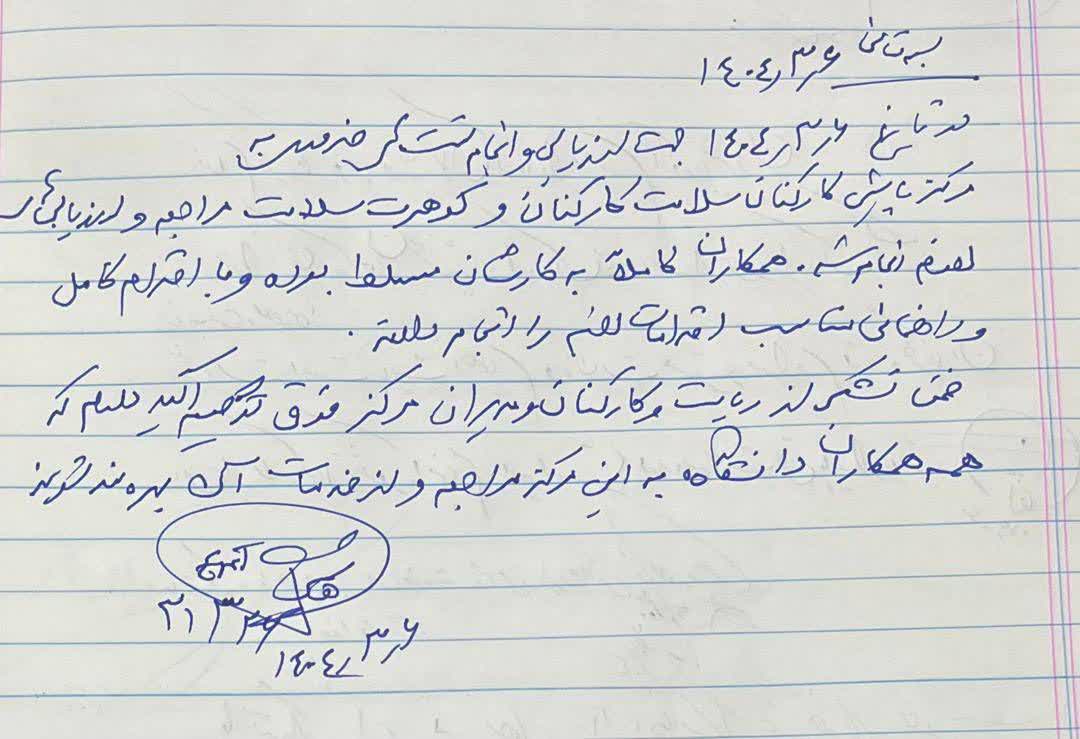 بسمه تعالی ۱۴۰۴٫۳٫۶
در تاریخ ۱۴۰۴٫۳٫۶ جهت ارزیابی و انجام تست های ضروری به
مرکز پایش کارکنان سلامت کارکنان و کوهورت سلامت مراجعه و ارزیابی های
لازم انجام شد. همکاران کاملاً به کارشان مسلط بوده و با احترام کامل
و راهنمائی مناسب اقدامات لازم را انجام دادند.
ضمن تشکر از ریاست و کارکنان و مدیران مرکز فوق توصیه اکید دارم که
همه همکاران دانشگاه به این مرکز مراجعه و از خدمات آن بهره مند شوند
۱۴۰۴٫۳٫۶